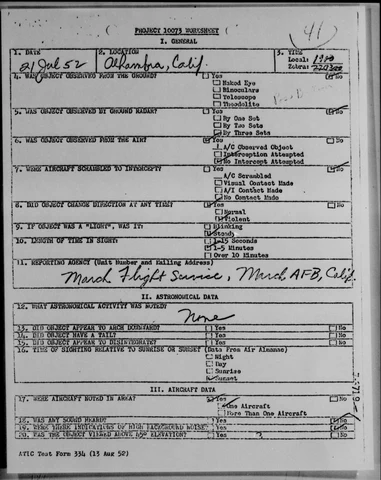 PROJECT 10073 WORKSHEET
I. GENERAL
1. DATE 2. LOCATION 3. TIME
21 Jul 52 Alhambra, Calif. Local:
Zebra:
4. WAS OBJECT OBSERVED FROM THE GROUND? Yes No
Naked Eye
Binoculars
Telescope
Theodolite
5. WAS OBJECT OBSERVED BY GROUND RADAR? Yes No
By One Set
By Two Sets
By Three Sets
6. WAS OBJECT OBSERVED FROM THE AIR? Yes No
A/C Observed Object
Interception Attempted
No Intercept Attempted
7. WERE AIRCRAFT SCRAMBLED TO INTERCEPT? Yes No
A/C Scrambled
Visual Contact Made
A/I Contact Made
No Contact Made
8. DID OBJECT CHANGE DIRECTION AT ANY TIME? Yes No
Normal
Violent
9. IF OBJECT WAS A "LIGHT", WAS IT: Blinking
Steady
10. LENGTH OF TIME IN SIGHT: 1-15 Seconds
1-5 Minutes
Over 10 Minutes
11. REPORTING AGENCY (Unit Number and Mailing Address)
March Flight Service, March AFB, Calif.
II. ASTRONOMICAL DATA
12. WHAT ASTRONOMICAL ACTIVITY WAS NOTED?
None
13. DID OBJECT APPEAR TO ARCH DOWNWARD? Yes No
14. DID OBJECT HAVE A TAIL? Yes No
15. DID OBJECT APPEAR TO DISINTEGRATE? Yes No
16. TIME OF SIGHTING RELATIVE TO SUNRISE OR SUNSET (Data From Air Almanac)
Night
Day
Sunrise
Sunset
III. AIRCRAFT DATA
17. WERE AIRCRAFT NOTED IN AREA? Yes No
One Aircraft
More Than One Aircraft
18. WAS ANY SOUND HEARD? Yes No
19. WERE THERE INDICATIONS OF HIGH BACKGROUND NOISE? Yes No
20. WAS THE OBJECT VIEWED ABOVE 45° ELEVATION? Yes ? No
ATIC Test Form 334 (13 Aug 52)